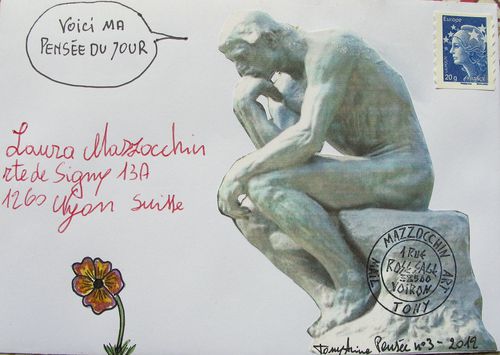 VOICI MA
PENSÉE DU JOUR
Europe
20g
FRANCE
Laura Mazzocchin
rte de Signy 13A
1260 Nyon Suisse
MAZZOCCHIN ART
MAIL
1 RUE
ROSE SAGE
38500
VOIRON
TONY
Pensée n°3 - 2012